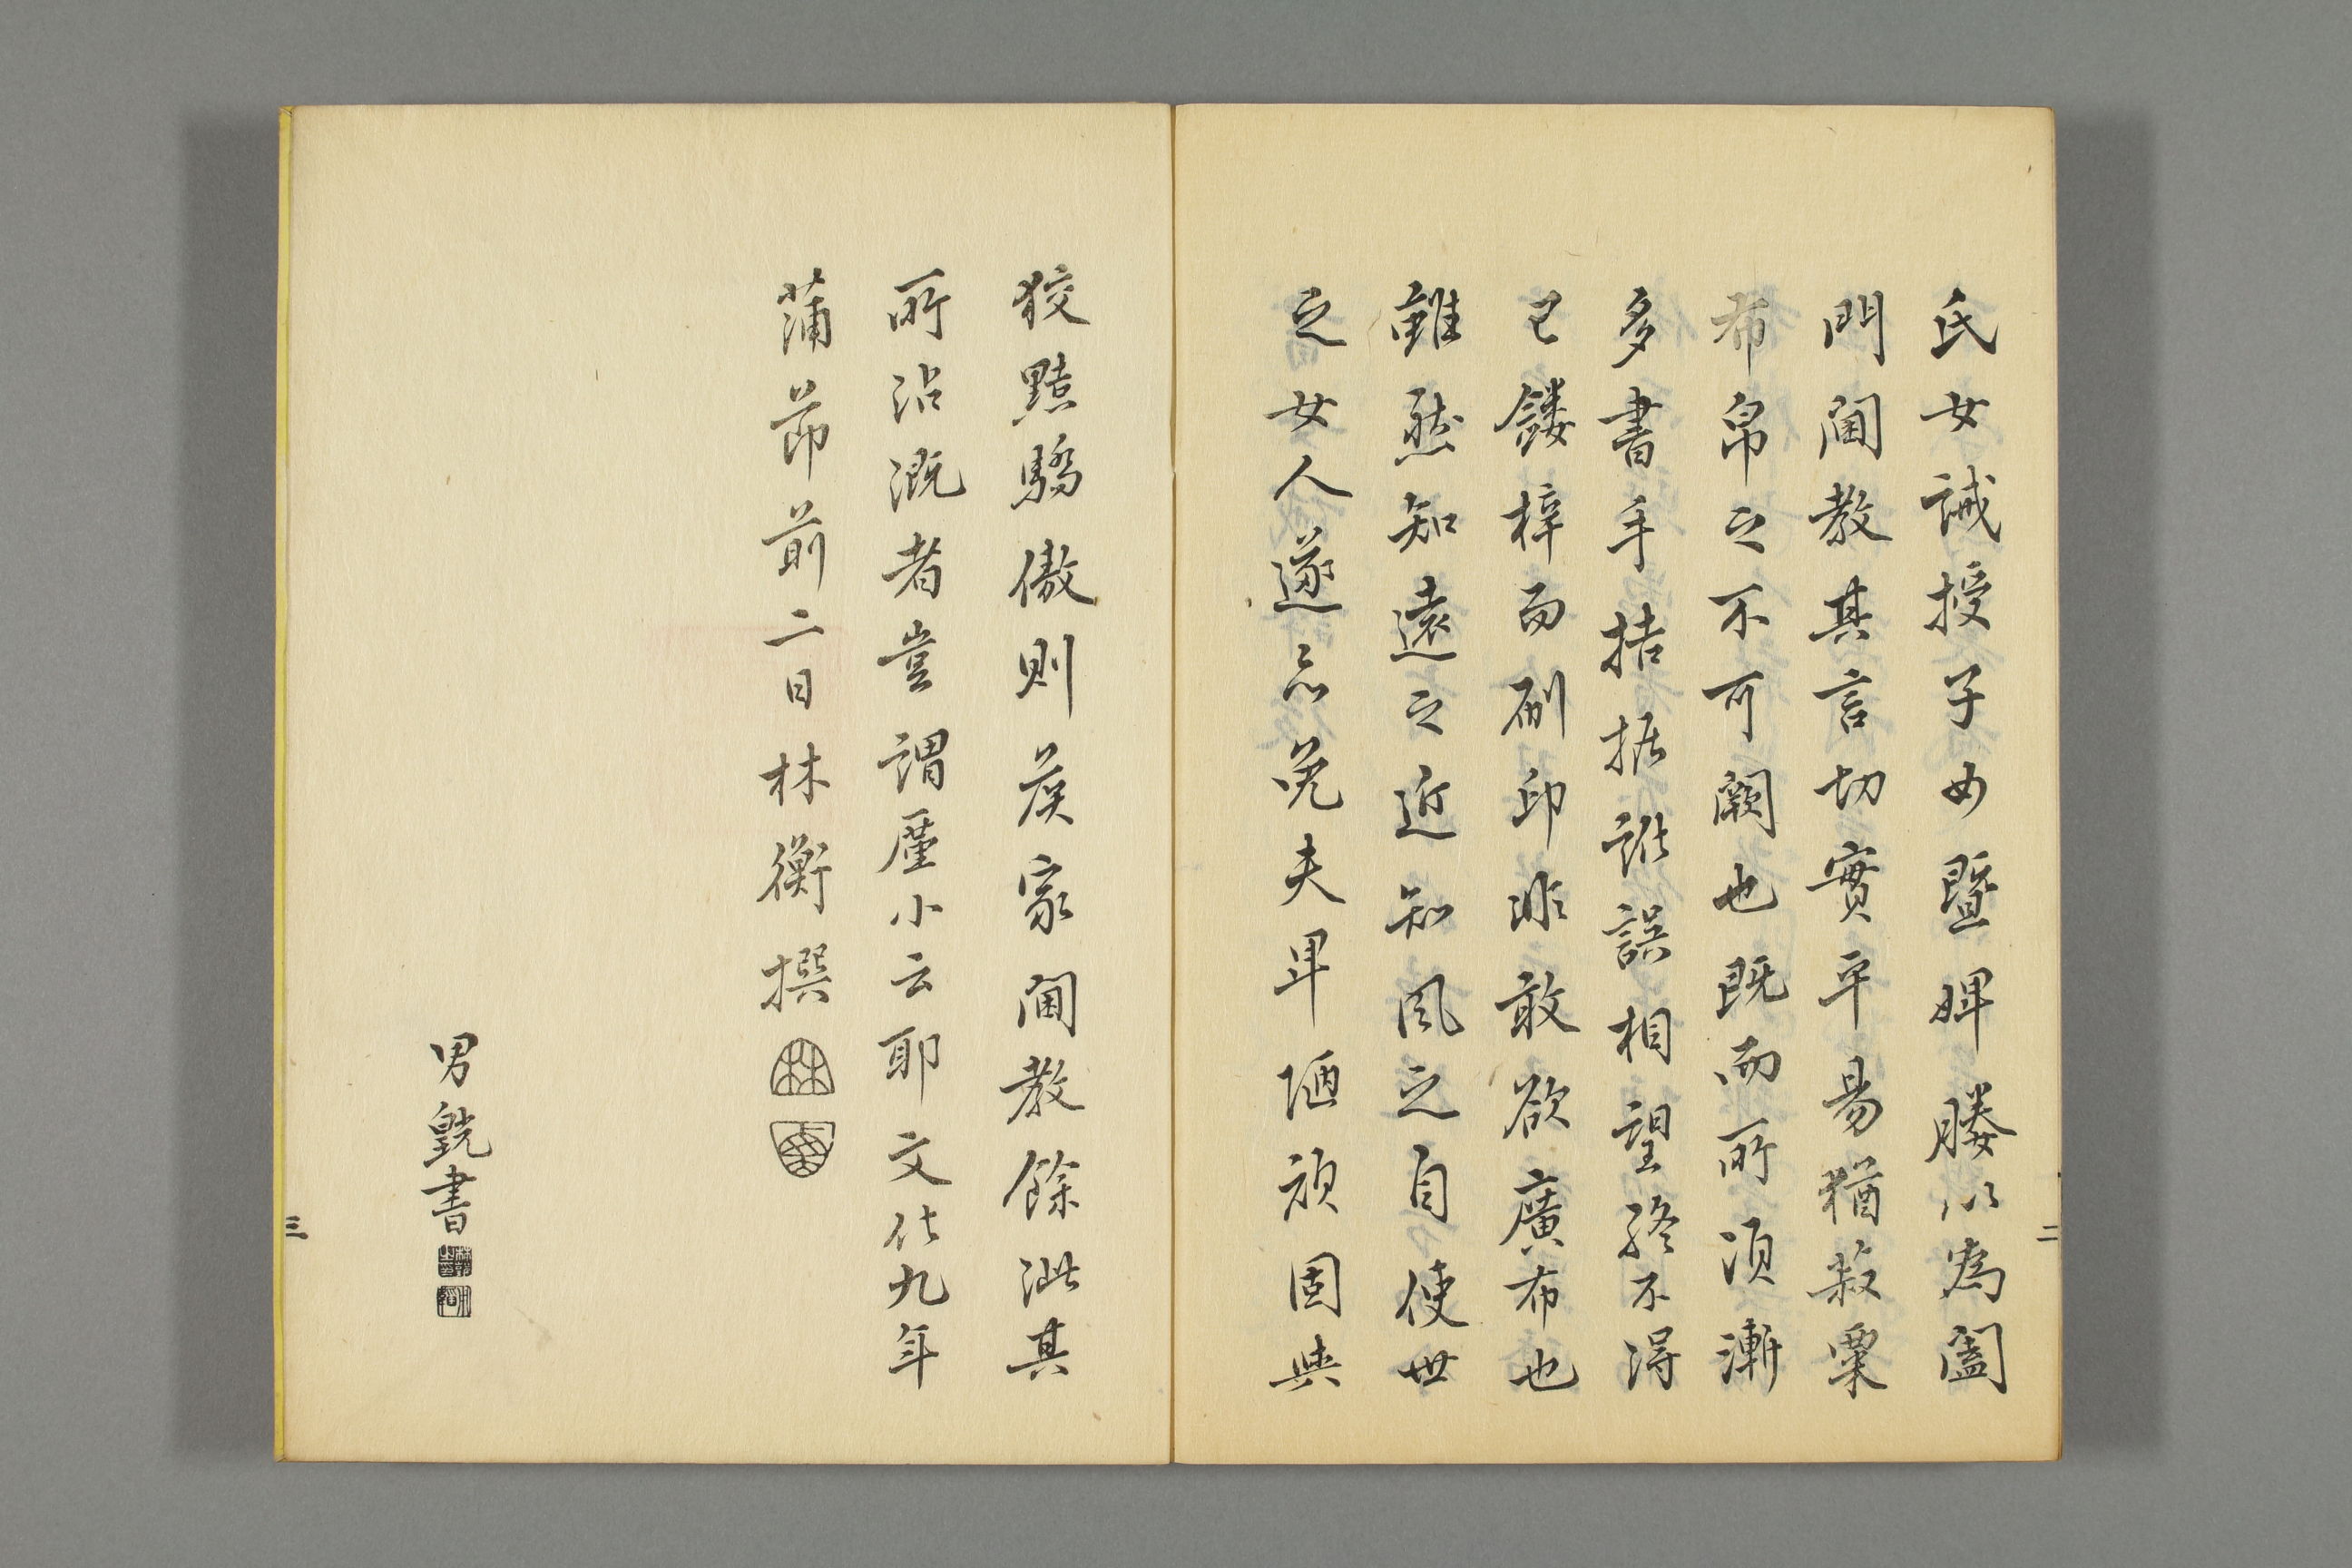 二
氏女誡授子女暨婢媵以為闔
門閫教其言切實平易猶菽粟
布帛之不可闕也既而所須漸
多書手拮据訛誤相望終不得
已鏤梓而刷印非敢欲廣布也
雖然知遠之近知風之自使世
之女人遂免夫卑陋頑固與
狡黠驕傲則侯家閫教餘泚其
所沾溉者豈謂廑小云耶文化九年
蒲節前二日林衡撰
林
男皝書
三